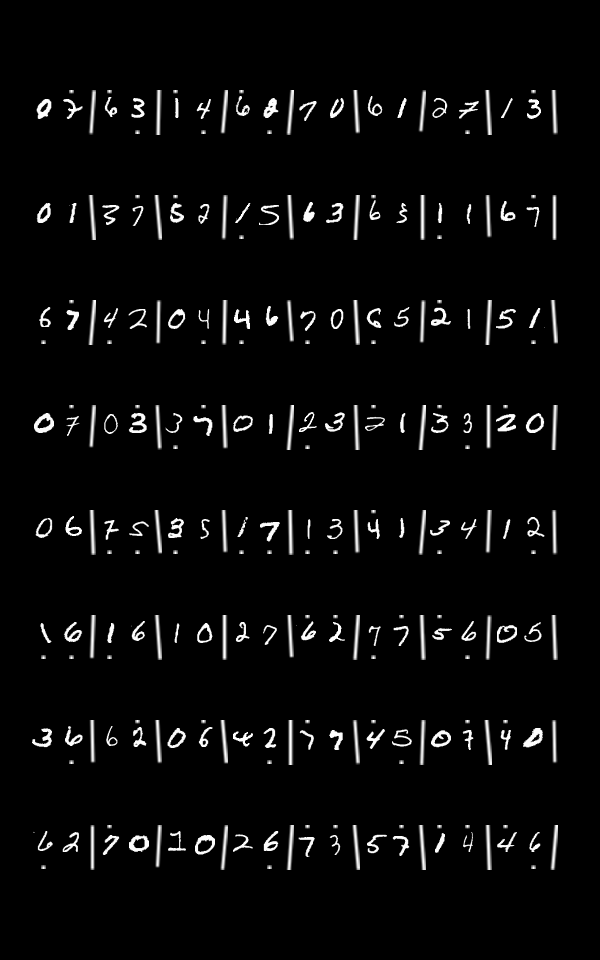 0 7 | 6 3 | 1 4 | 6 2 | 7 0 | 6 1 | 2 7 | 1 3 |
0 1 | 3 7 | 5 2 | 1 5 | 6 3 | 6 3 | 1 1 | 6 7 |
6 7 | 4 2 | 0 4 | 4 6 | 7 0 | 6 5 | 2 1 | 5 1 |
0 7 | 0 3 | 3 7 | 0 1 | 2 3 | 2 1 | 3 3 | 2 0 |
0 6 | 7 5 | 3 5 | 1 7 | 1 3 | 4 1 | 3 4 | 1 2 |
1 6 | 1 6 | 1 0 | 2 7 | 6 2 | 7 7 | 5 6 | 0 5 |
3 6 | 6 2 | 0 6 | 4 2 | 7 7 | 4 5 | 0 7 | 4 0 |
6 2 | 7 0 | 1 0 | 2 6 | 7 3 | 5 7 | 1 4 | 4 6 |